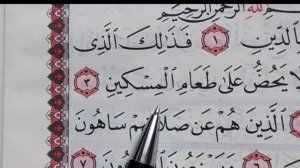 ٱللَّهِ ٱلرَّحْمَٰنِ ٱلرَّحِيمِ
بِٱلدِّينِ ١ فَذَٰلِكَ ٱلَّذِى
لَا يَحُضُّ عَلَىٰ طَعَامِ ٱلْمِسْكِينِ ٣
ٱلَّذِينَ هُمْ عَن صَلَاتِهِمْ سَاهُونَ
٧